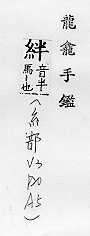 龍龕手鑑
絆音半馬丨也(糸部 V3 A5)